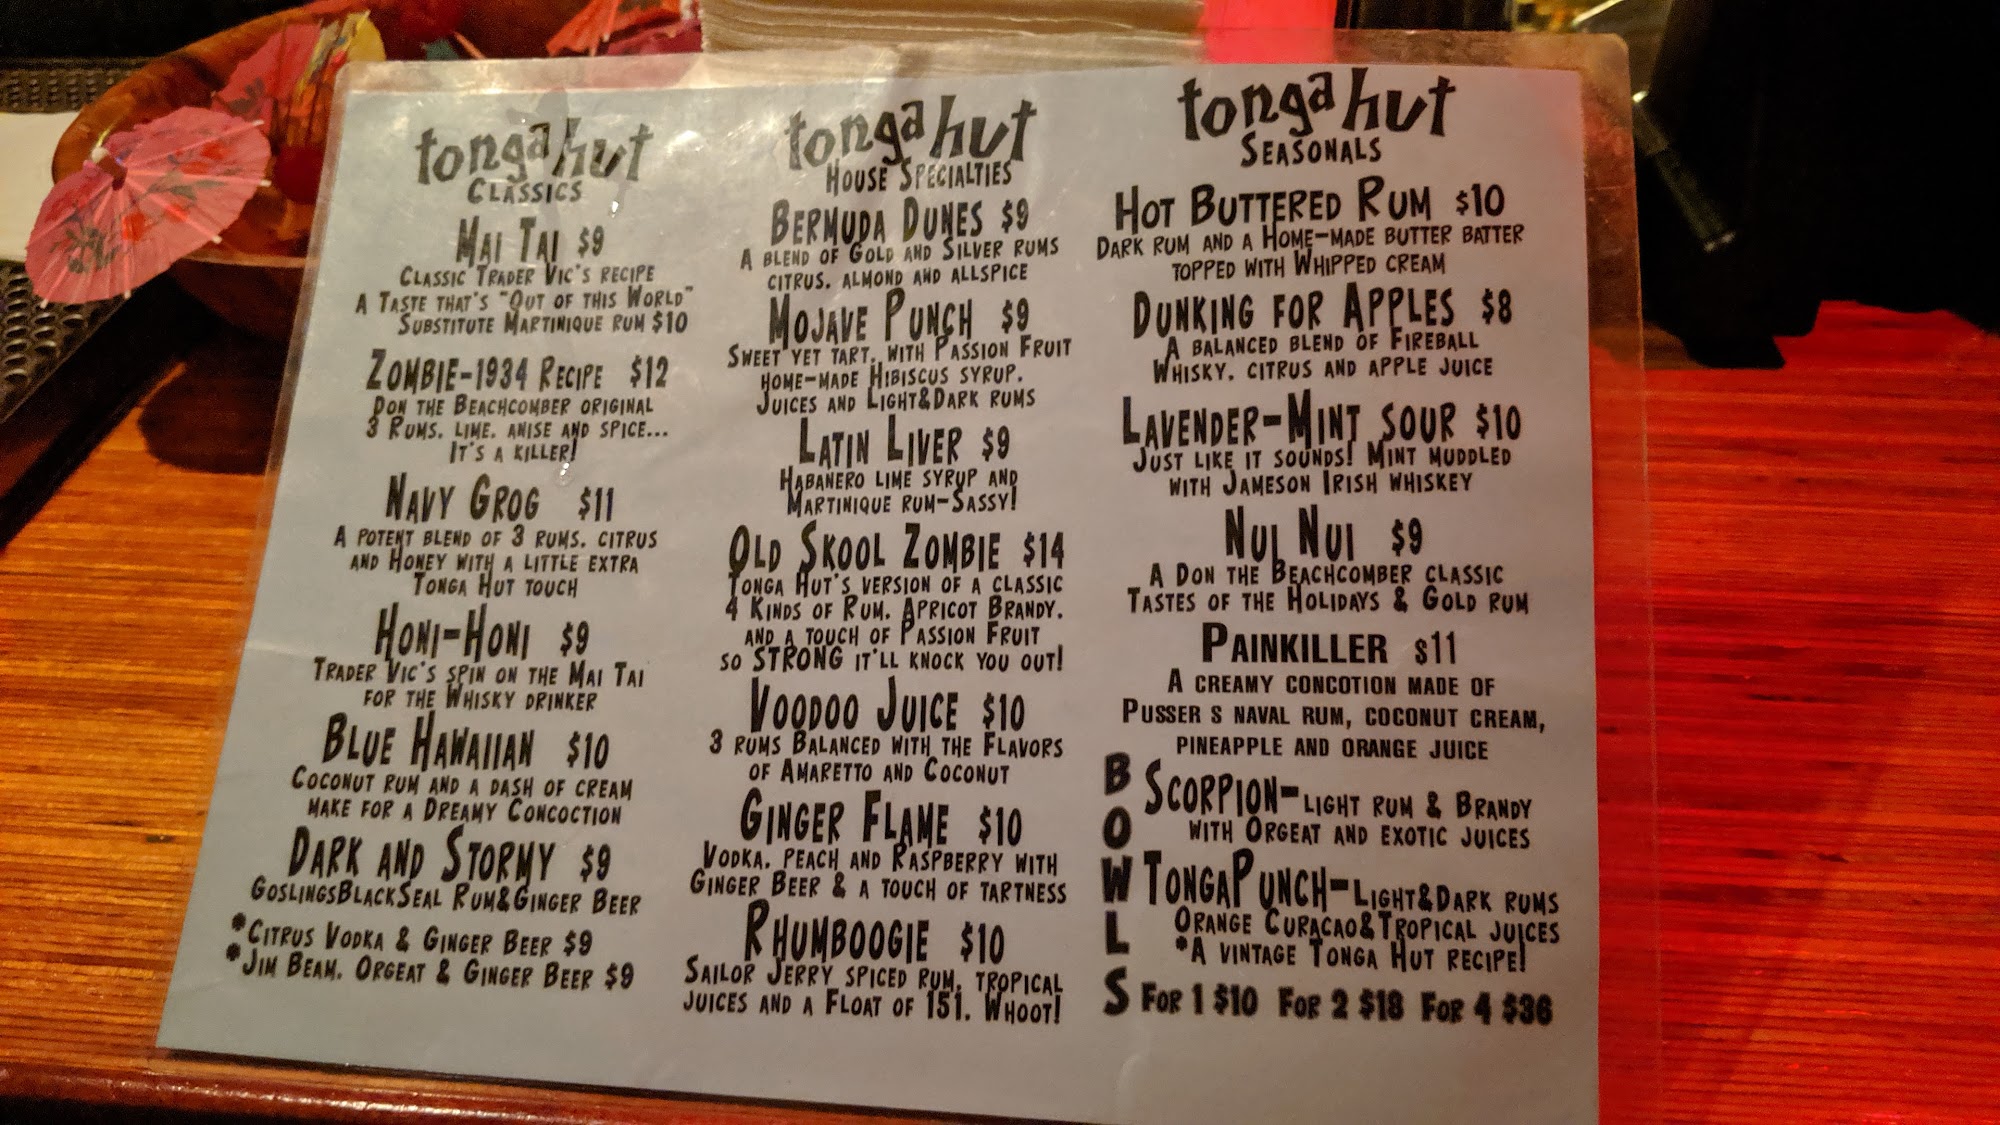 tonga hut
Classics
Mai Tai $9
Classic Trader Vic's recipe
A Taste that's "Out of this World"
Substitute Martinique rum $10
Zombie-1934 Recipe $12
Don the Beachcomber original
3 Rums, lime, anise and spice...
It's a killer!
Navy Grog $11
A potent blend of 3 rums, citrus
and Honey with a little extra
Tonga Hut touch
Honi-Honi $9
Trader Vic's spin on the Mai Tai
for the Whisky drinker
Blue Hawaiian $10
Coconut rum and a dash of cream
make for a Dreamy Concoction
Dark and Stormy $9
GoslingsBlackSeal Rum&Ginger Beer
*Citrus Vodka & Ginger Beer $9
*Jim Beam, Orgeat & Ginger Beer $9
tonga hut
House Specialties
Bermuda Dunes $9
A blend of Gold and Silver rums
citrus, almond and allspice
Mojave Punch $9
Sweet yet tart, with Passion Fruit
home-made Hibiscus syrup,
Juices and Light&Dark rums
Latin Liver $9
Habanero lime syrup and
Martinique rum-Sassy!
Old Skool Zombie $14
Tonga Hut's version of a classic
4 Kinds of Rum, Apricot Brandy,
and a touch of Passion Fruit
so STRONG it'll knock you out!
Voodoo Juice $10
3 rums Balanced with the Flavors
of Amaretto and Coconut
Ginger Flame $10
Vodka, peach and Raspberry with
Ginger Beer & a touch of tartness
Rhumboogie $10
Sailor Jerry spiced rum, tropical
juices and a Float of 151, Whoot!
tonga hut
Seasonals
Hot Buttered Rum $10
Dark rum and a Home-made butter batter
topped with Whipped cream
Dunking for Apples $8
A balanced blend of Fireball
Whisky, citrus and apple juice
Lavender-Mint sour $10
Just like it sounds! Mint muddled
with Jameson Irish whiskey
Nui Nui $9
A Don the Beachcomber classic
Tastes of the Holidays & Gold rum
Painkiller $11
A creamy concotion made of
Pusser s naval rum, coconut cream,
pineapple and orange juice
BOWLS
Scorpion-light rum & Brandy
with Orgeat and exotic juices
TongaPunch-Light&Dark rums
Orange Curacao&Tropical juices
*A vintage Tonga Hut recipe!
For 1 $10 For 2 $18 For 4 $36